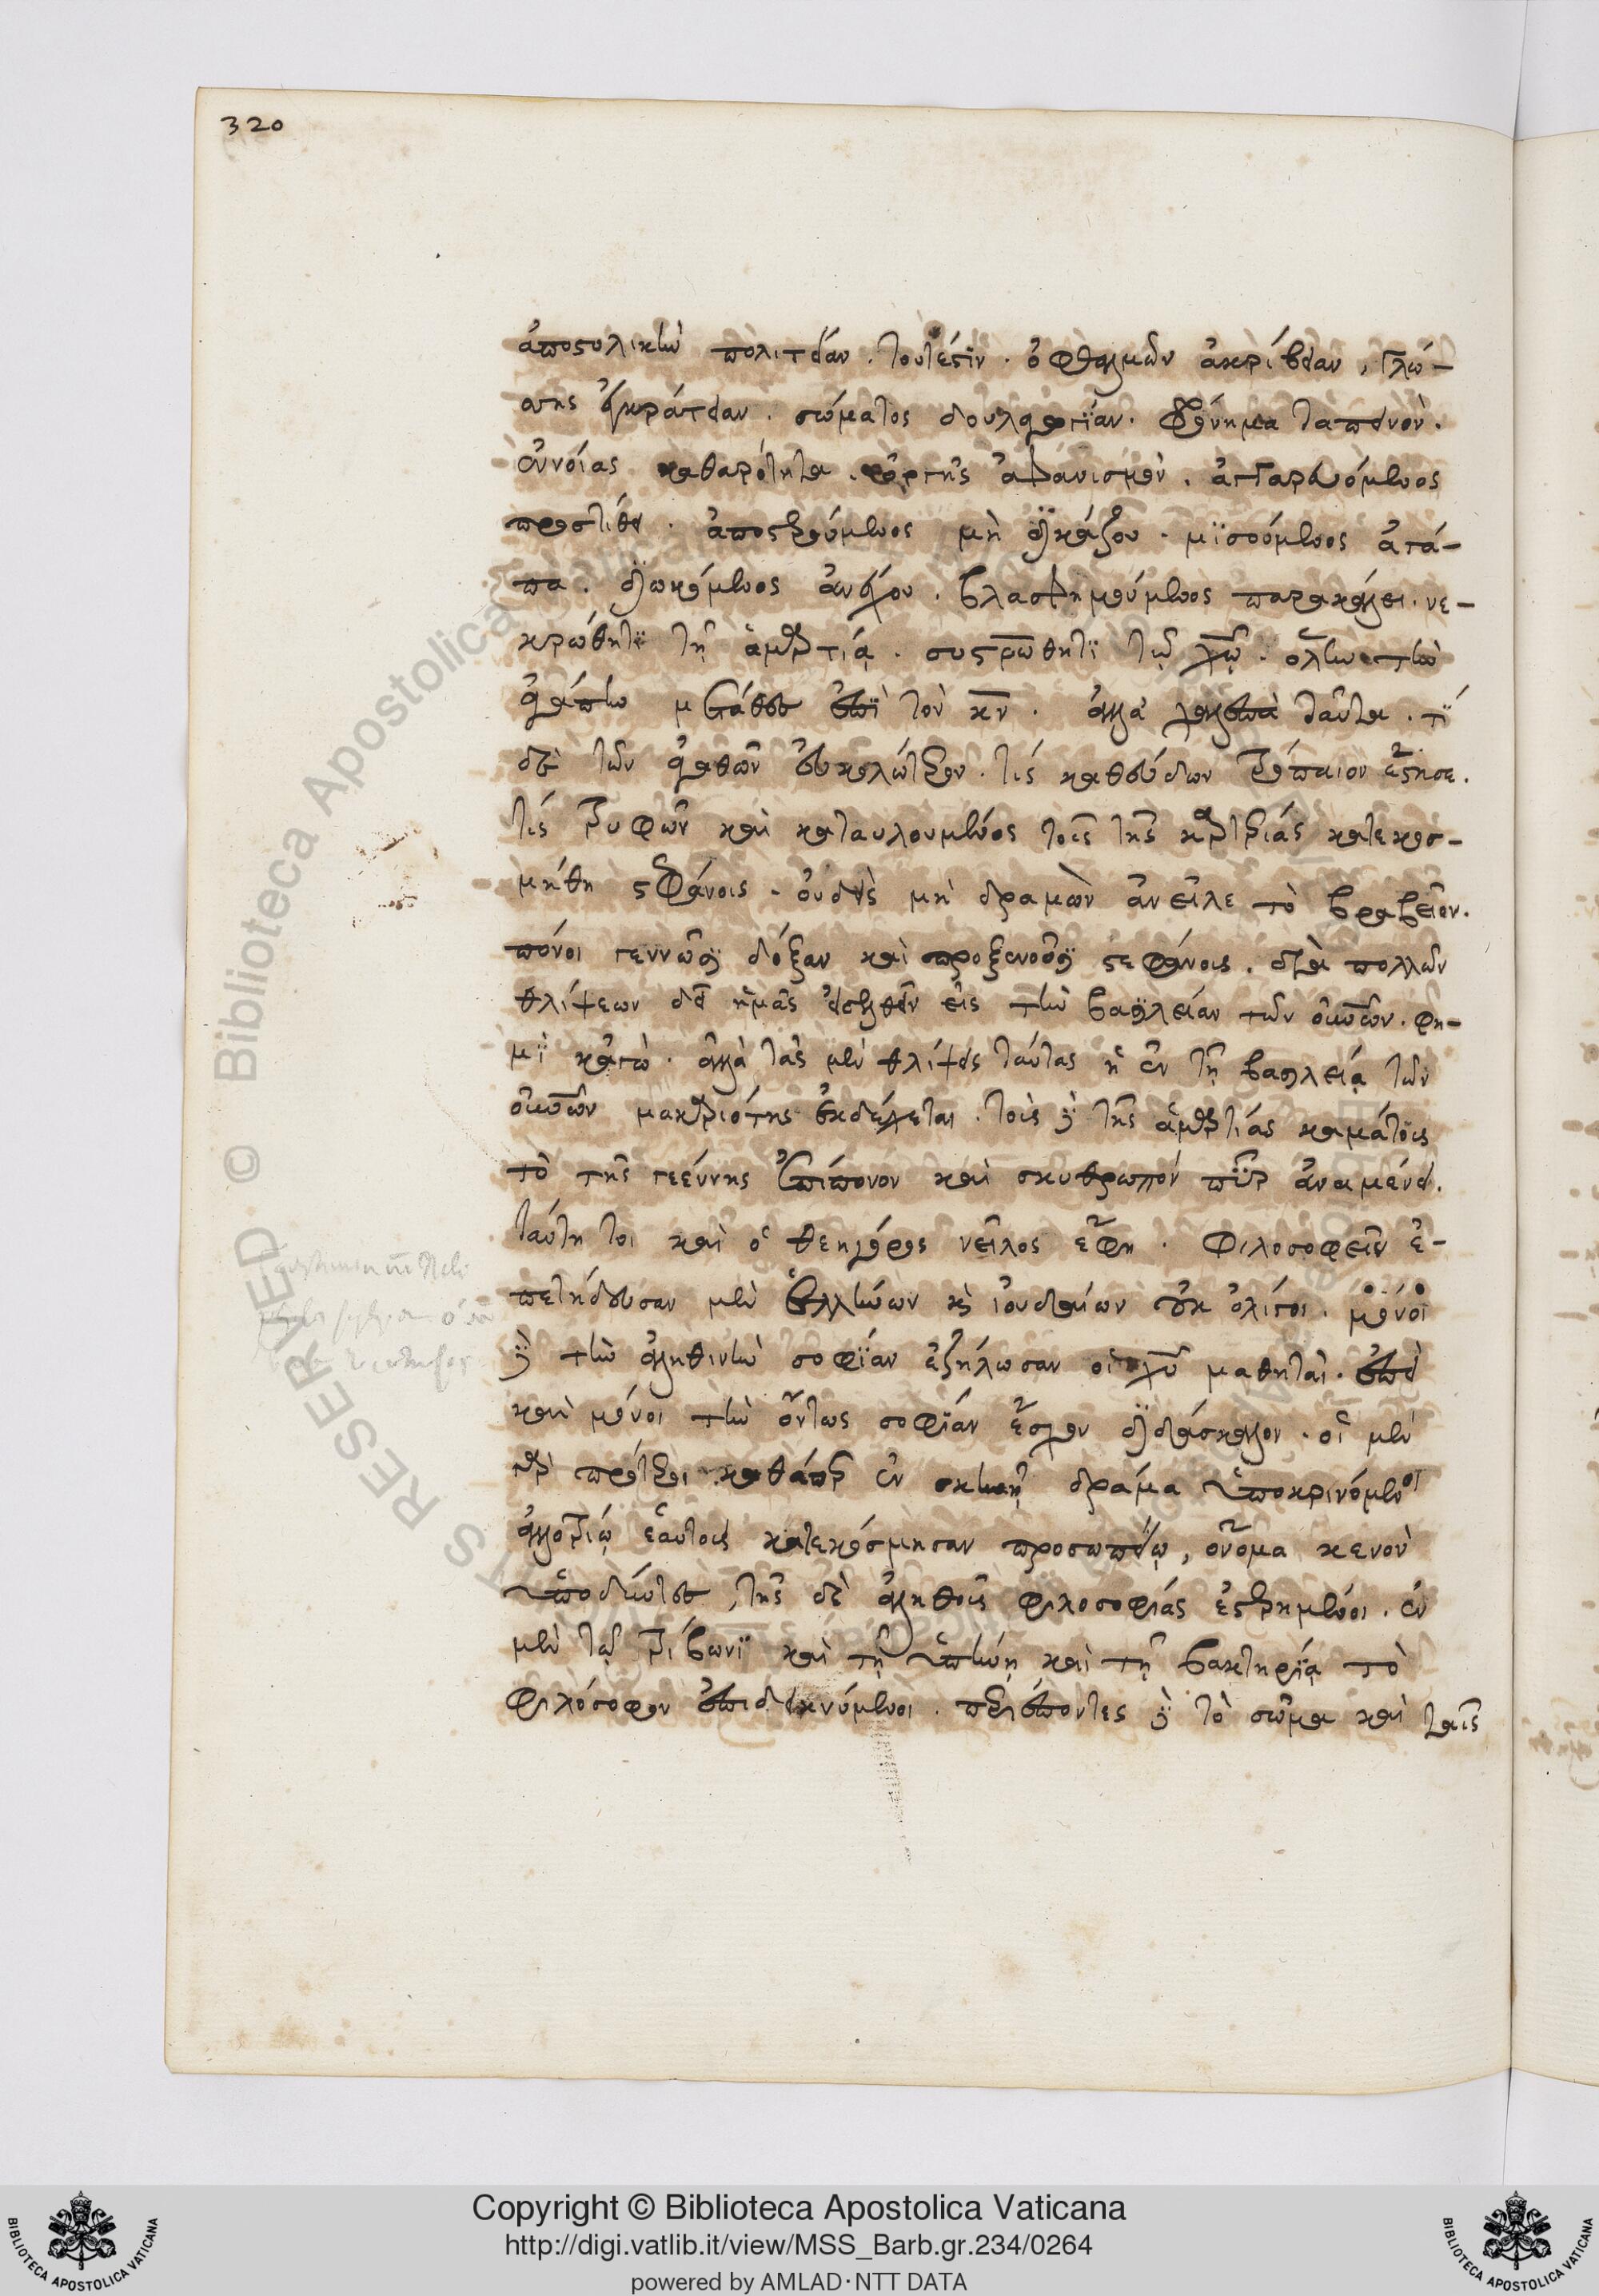 320
ἀποστολικὴν πολιτείαν. τουτέστιν. ὀφθαλμῶν ἀκρίβειαν, γλώ-
σσης ἐγκράτειαν. σώματος δουλαγωγίαν. φρόνημα ταπεινὸν.
ἐννοίας καθαρότητα. ὀργῆς ἀφανισμὸν. ἀγγαρευόμενος
προστίθει. ἀποστερούμενος μὴ δικάζου. μισούμενος ἀγά-
πα. διωκόμενος ἀνέχου. βλασφημούμενος παρακάλει. νε-
κρώθητι τῇ ἁμαρτίᾳ. συσταυρώθητι τῷ χῷ. ὅλην τὴν
ἀγάπην μετάθες ἐπὶ τὸν κν. ἀλλὰ χαλεπὰ ταῦτα. τί
δὲ τῶν ἀγαθῶν εὐκολώτερον. τίς καθεύδων τρόπαιον ἔστησε.
τίς τρυφῶν καὶ καταυλούμενος τοῖς τῆς καρτερίας κατεκοσ-
μήθη στεφάνοις. οὐδεὶς μὴ δραμὼν ἀνεῖλε τὸ βραβεῖον.
πόνοι γεννῶσι δόξαν καὶ προξενοῦσι στεφάνοις. διὰ πολλῶν
θλίψεων δεῖ ἡμᾶς εἰσελθεῖν εἰς τὴν βασιλείαν τῶν οὐνῶν. φη-
μὶ κἀγὼ. ἀλλὰ τὰς μὲν θλίψεις ταύτας ἡ ἐν τῇ βασιλείᾳ τῶν
οὐνῶν μακαριότης ἐκδέχεται. τοῖς δὲ τῆς ἁμαρτίας καμάτοις
τὸ τῆς γεέννης ἐπίπονον καὶ σκυθρωπὸν πῦρ ἀναμένει.
ταύτῃ τοι καὶ ὁ θεηγόρος νεῖλος ἔφη. Φιλοσοφεῖν ἐ-
πετήδευσαν μὲν ἑλλήνων κ ἰουδαίων οὐκ ὀλίγοι. μόνοι
δὲ τὴν ἀληθινὴν σοφίαν ἐζήλωσαν οἱ χῦ μαθηταὶ. ἐπεὶ
καὶ μόνοι τὴν ὄντως σοφίαν ἔσχον διδάσκαλον. οἱ μὲν
γὰρ πρότεροι καθάπερ ἐν σκηνῇ δράμα ὑποκρινόμενοι
ἀλλοτρίῳ ἑαυτοὺς κατεκόσμησαν προσωπείῳ, ὄνομα κενὸν
ὑποδύντες, τῆς δὲ ἀληθοῦς φιλοσοφίας ἐστερημένοι. ἐν
μὲν τῷ τρίβωνι καὶ τῇ ὑπήνῃ καὶ τῇ βακτηρίᾳ τὸ
φιλόσοφον ἐπιδεικνύμενοι. περιέποντες δὲ τὸ σῶμα καὶ ταῖς
Biblioteca Apostolica
RESERVED © Biblioteca Apostolica
Copyright © Biblioteca Apostolica Vaticana
http://digi.vatlib.it/view/MSS_Barb.gr.234/0264
powered by AMLAD·NTT DATA
BIBLIOTECA APOSTOLICA VATICANA
BIBLIOTECA APOSTOLICA VATICANA